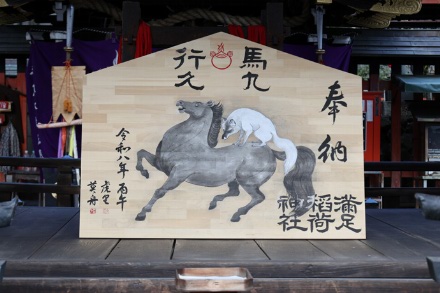 馬九
行久
奉納
令和八年 丙午
満足
稲荷
神社